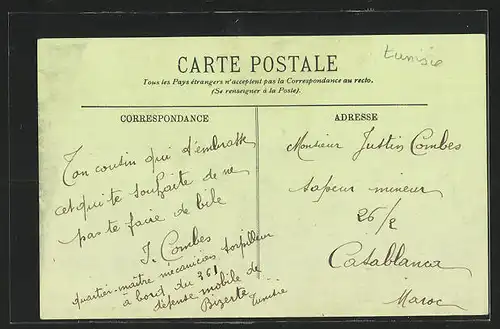 tunisie
CARTE POSTALE
Tous les Pays étrangers n'acceptent pas la Correspondance au recto.
(Se renseigner à la Poste).
CORRESPONDANCE
Ton cousin qui t'embrasse
et qui te souhaite de ne
pas te faire de bile
J. Combes
quartier-maître mécanicien torpilleur
à bord du 361
défense mobile de
Bizerte
Tunisie
ADRESSE
Monsieur Justin Combes
sapeur mineur
26/2
Casablanca
Maroc